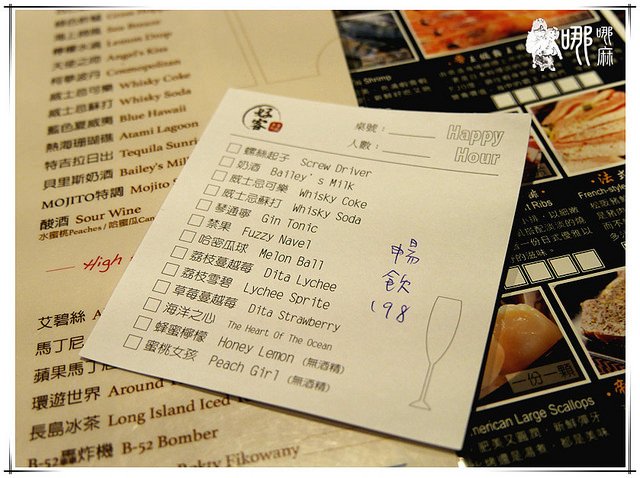 哪
哪
麻
威士忌可樂 Whisky Coke
威士忌蘇打 Whisky Soda
藍色夏威夷 Blue Hawaii
熱海珊瑚礁 Atami Lagoon
特吉拉日出 Tequila Sunri
貝里斯奶酒 Bailey's Mil
MOJITO特調 Mojito
酸酒 Sour Wine
水蜜桃Peaches / 哈蜜瓜Can
High
艾碧絲 A
馬丁尼
蘋果馬丁
環遊世界 Around
長島冰茶 Long Island Iced
B-52轟炸機 B-52 Bomber
Fikowany
好客
桌號：
人數：
Happy
Hour
螺絲起子 Screw Driver
奶酒 Bailey's Milk
威士忌可樂 Whisky Coke
威士忌蘇打 Whisky Soda
琴通寧 Gin Tonic
禁果 Fuzzy Navel
哈密瓜球 Melon Ball
荔枝蔓越莓 Dita Lychee
荔枝雪碧 Lychee Sprite
草莓蔓越莓 Dita Strawberry
海洋之心 The Heart Of The Ocean
蜂蜜檸檬 Honey Lemon (無酒精)
蜜桃女孩 Peach Girl (無酒精)
暢
飲
198
Shrimp
Ribs
法
French-style
一份一顆
merican Large Scallops
肥美又圓潤，新鮮彈牙
都是美味